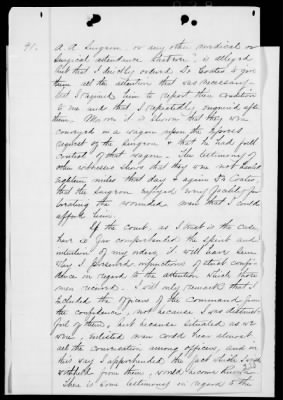 41.
A. A. Surgeon, or any other medical or
Surgical attendance whatever, is alleged
but that I directly ordered Dr Coates to give
them all the attention that was necessary
that I required him to report their condition
to me and that I repeatedly inquired after
them. Moreover it is shown that they were
conveyed in a wagon upon the express
request of the Surgeon & that he had full
control of that wagon. The testimony of
other witnesses shows that they were not
eighteen miles that day & again Dr Coates,
that the Surgeon enjoyed every facility for
treating the wounded men that I could
afford him.
If the Court, as I trust is the case,
have so far comprehended the spirit and
intention of my orders, it will have seen
why I observed injunctions of strict confi-
dence in regard to the attention which those
men received. I will only remark that I
included the officers of the Command from
the confidence, not because I was distrust-
ful of them, but because situated as we
were, enlisted men could hear almost
all the conversation among officers, and in
this way I apprehended the fact which I wish
withheld from them, would become known.
There is some testimony in regard to the